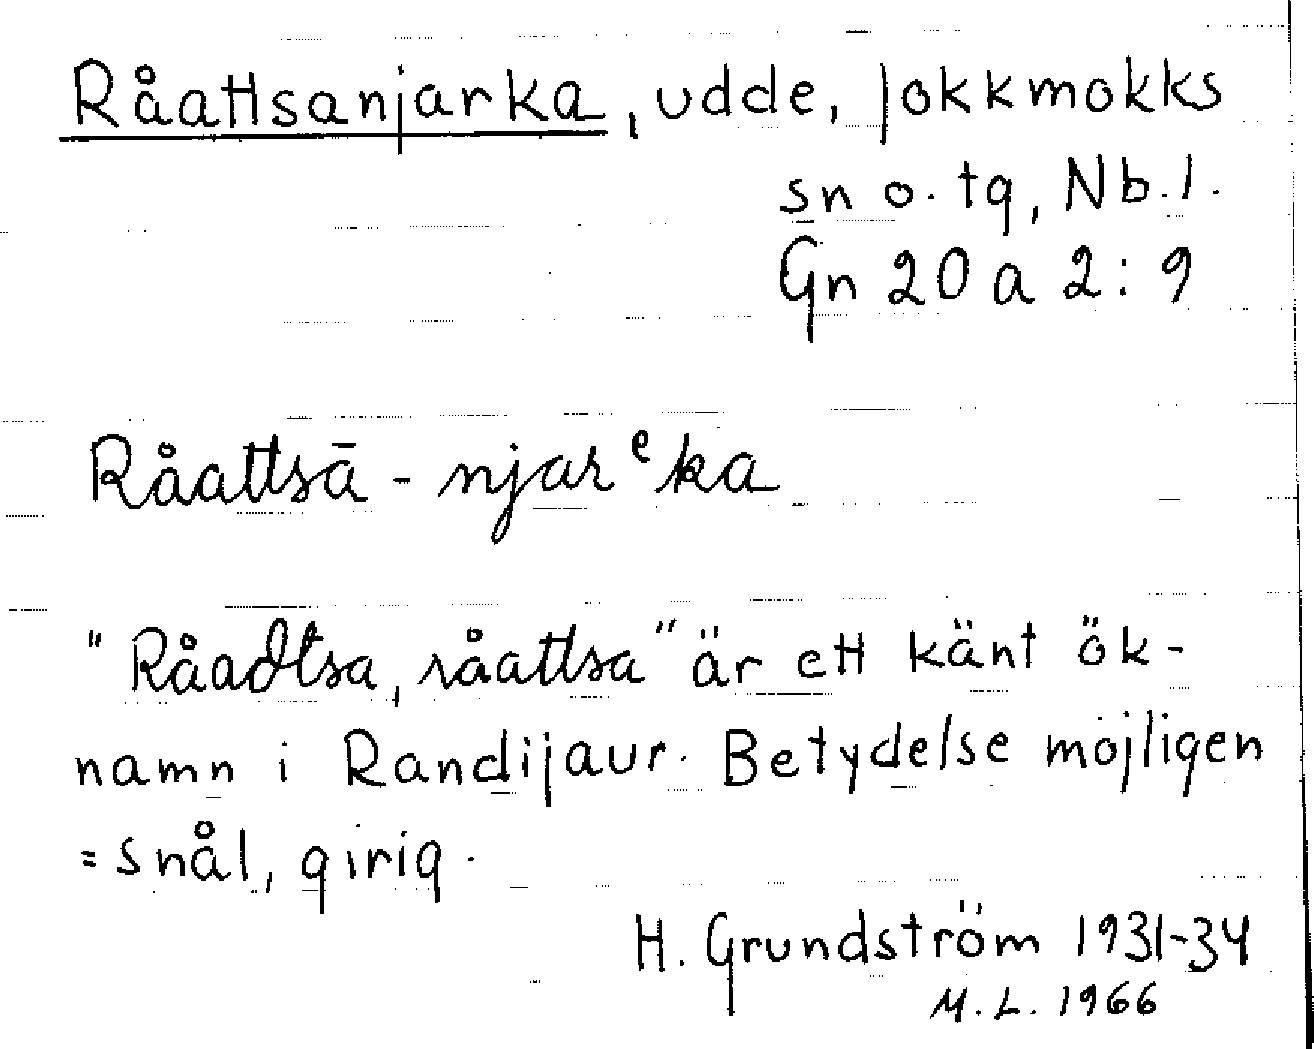 Råattsanjarka, udde, Jokkmokks
sn o. tg, Nb. l.
Gn 20 a 2:9
Råattsā - njarᵉka
"Råadtsa, råattsa" är ett känt ök-
namn i Randijaur. Betydelse möjligen
= snål, girig.
H. Grundström 1931-34
M. L. 1966